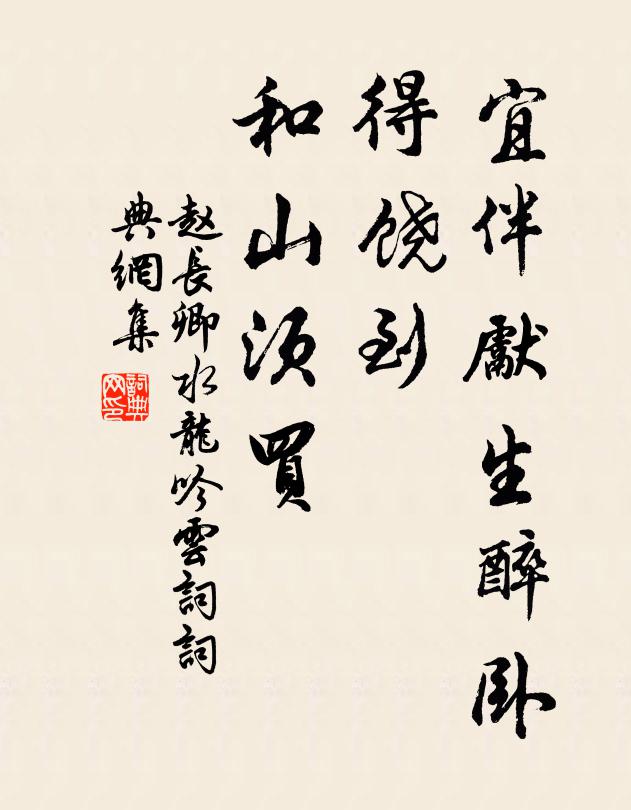 宜伴獻生醉卧
得饶到
和山須買
赵長卿水龍吟雲詞詞
典網集
詞典网印